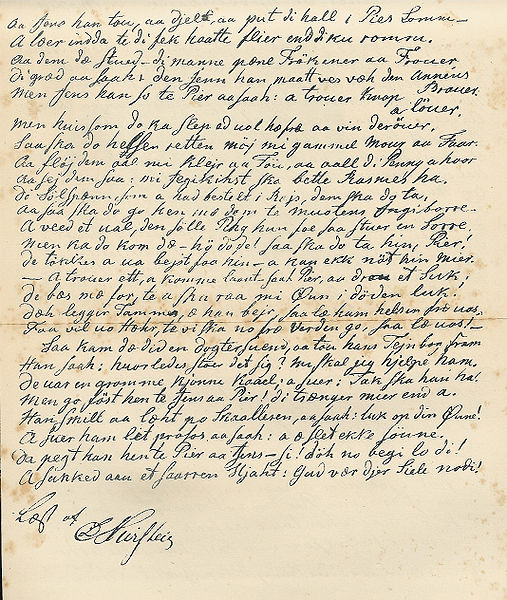 aa Jens han tou, aa djelt, aa put di hall i Pies Lomm –
A lær indda te di fek haatte flier end diku romm.
aa dem dæ stued – di manne pæne Frökener aa Frouer
Di græd aa saah: den jenn han maatt ves væh den Annens Brouer.
Men Jens han so te Pier aa saah: a trouer knap a löuer,
men huissom do ka slep ed vol hæræ aa vin deröuer,
Saa ska do helsen retten möj mi gammel Mour aa Faar.
Aa fløj dem aal mi klejr aa Töu, aa aall di Penng a hoor
aa sej dem saa: mi  ska bette Rasmes ha.
De Sölspænn, som a had bestelt i Rips, dem ska do ta,
aa saa ska do go hen mæ dem te Muetens Ingiborre –
A veed et ual, den jille Pihg hun foe saa stuer en Sorre,
Men ka do kom dæ – hö do de! saa ska do ta hin, Pier!
De tøkkes a ua bejst faa hin – a kan ekk nöt hin mier.
– A trouer ett, a komme laant – saah Pier, aa drou et Suk;
De bæs næ for, te a sku raa mi Øun i döden luk.
Dæh leggir Tammes, æ han bejr, saa læ ham helsen præ uos,
Faa vil uo Hæhr, te vi ska no præ Verden go, saa læ uos! –
Saa kam dæ di den dogtersuend, aa tou hans Tejnbog fram
Han saah; huorledes stour det sig? nu skal jeg hjelpe ham.
De uar en gromme kjönne Kaael, a suer; Tak ska han ha!
Men go föst hen te Jens aa Pier! di trænger mier end a.
Han smilt aa læht po Skaalleren, aa saah: luk op din Øune!
A suer ham let prøjs aa saah: a æ slet ekke söune.
Da pegt han hente Pier aa Jens – si! döh no begi lo di!
A sunked aan et saarren Hjaht: Gud vær djer Siele nodi!
Læst af